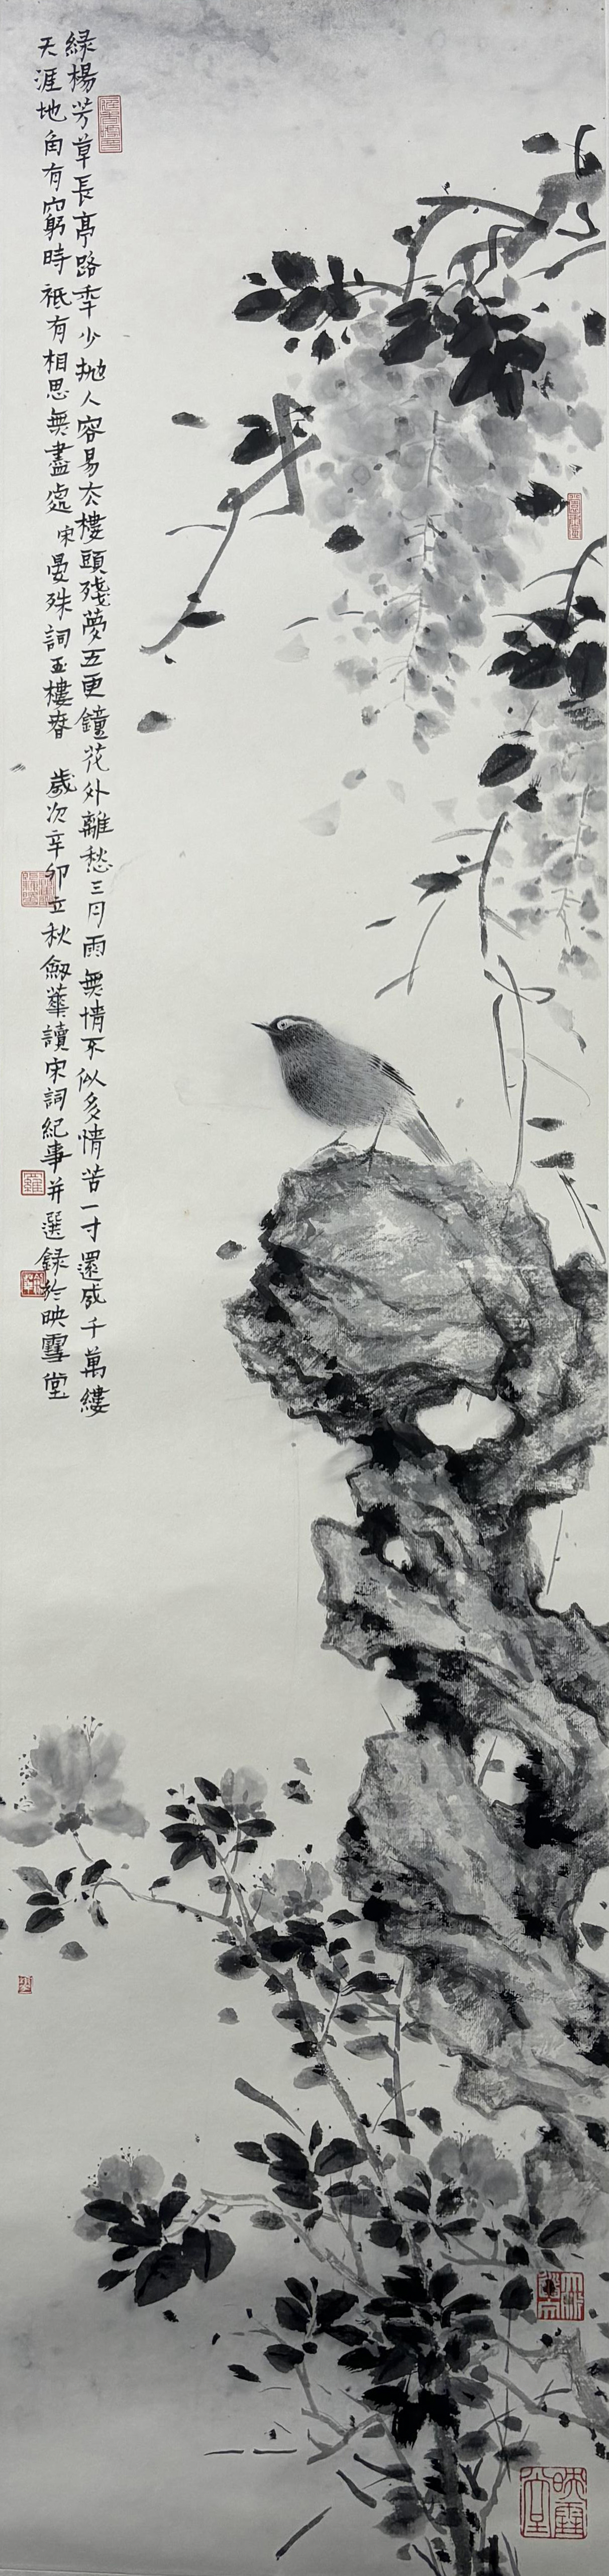 綠楊芳草長亭路秊少拋人容易厺樓頭殘夢五更鐘花外離愁三月雨無情不似多情苦一寸還成千萬縷
天涯地角有窮時祇有相思無盡處 宋晏殊詞玉樓春 歲次辛卯立秋劔華讀宋詞紀事并選錄於映雪堂
羅
映雪堂